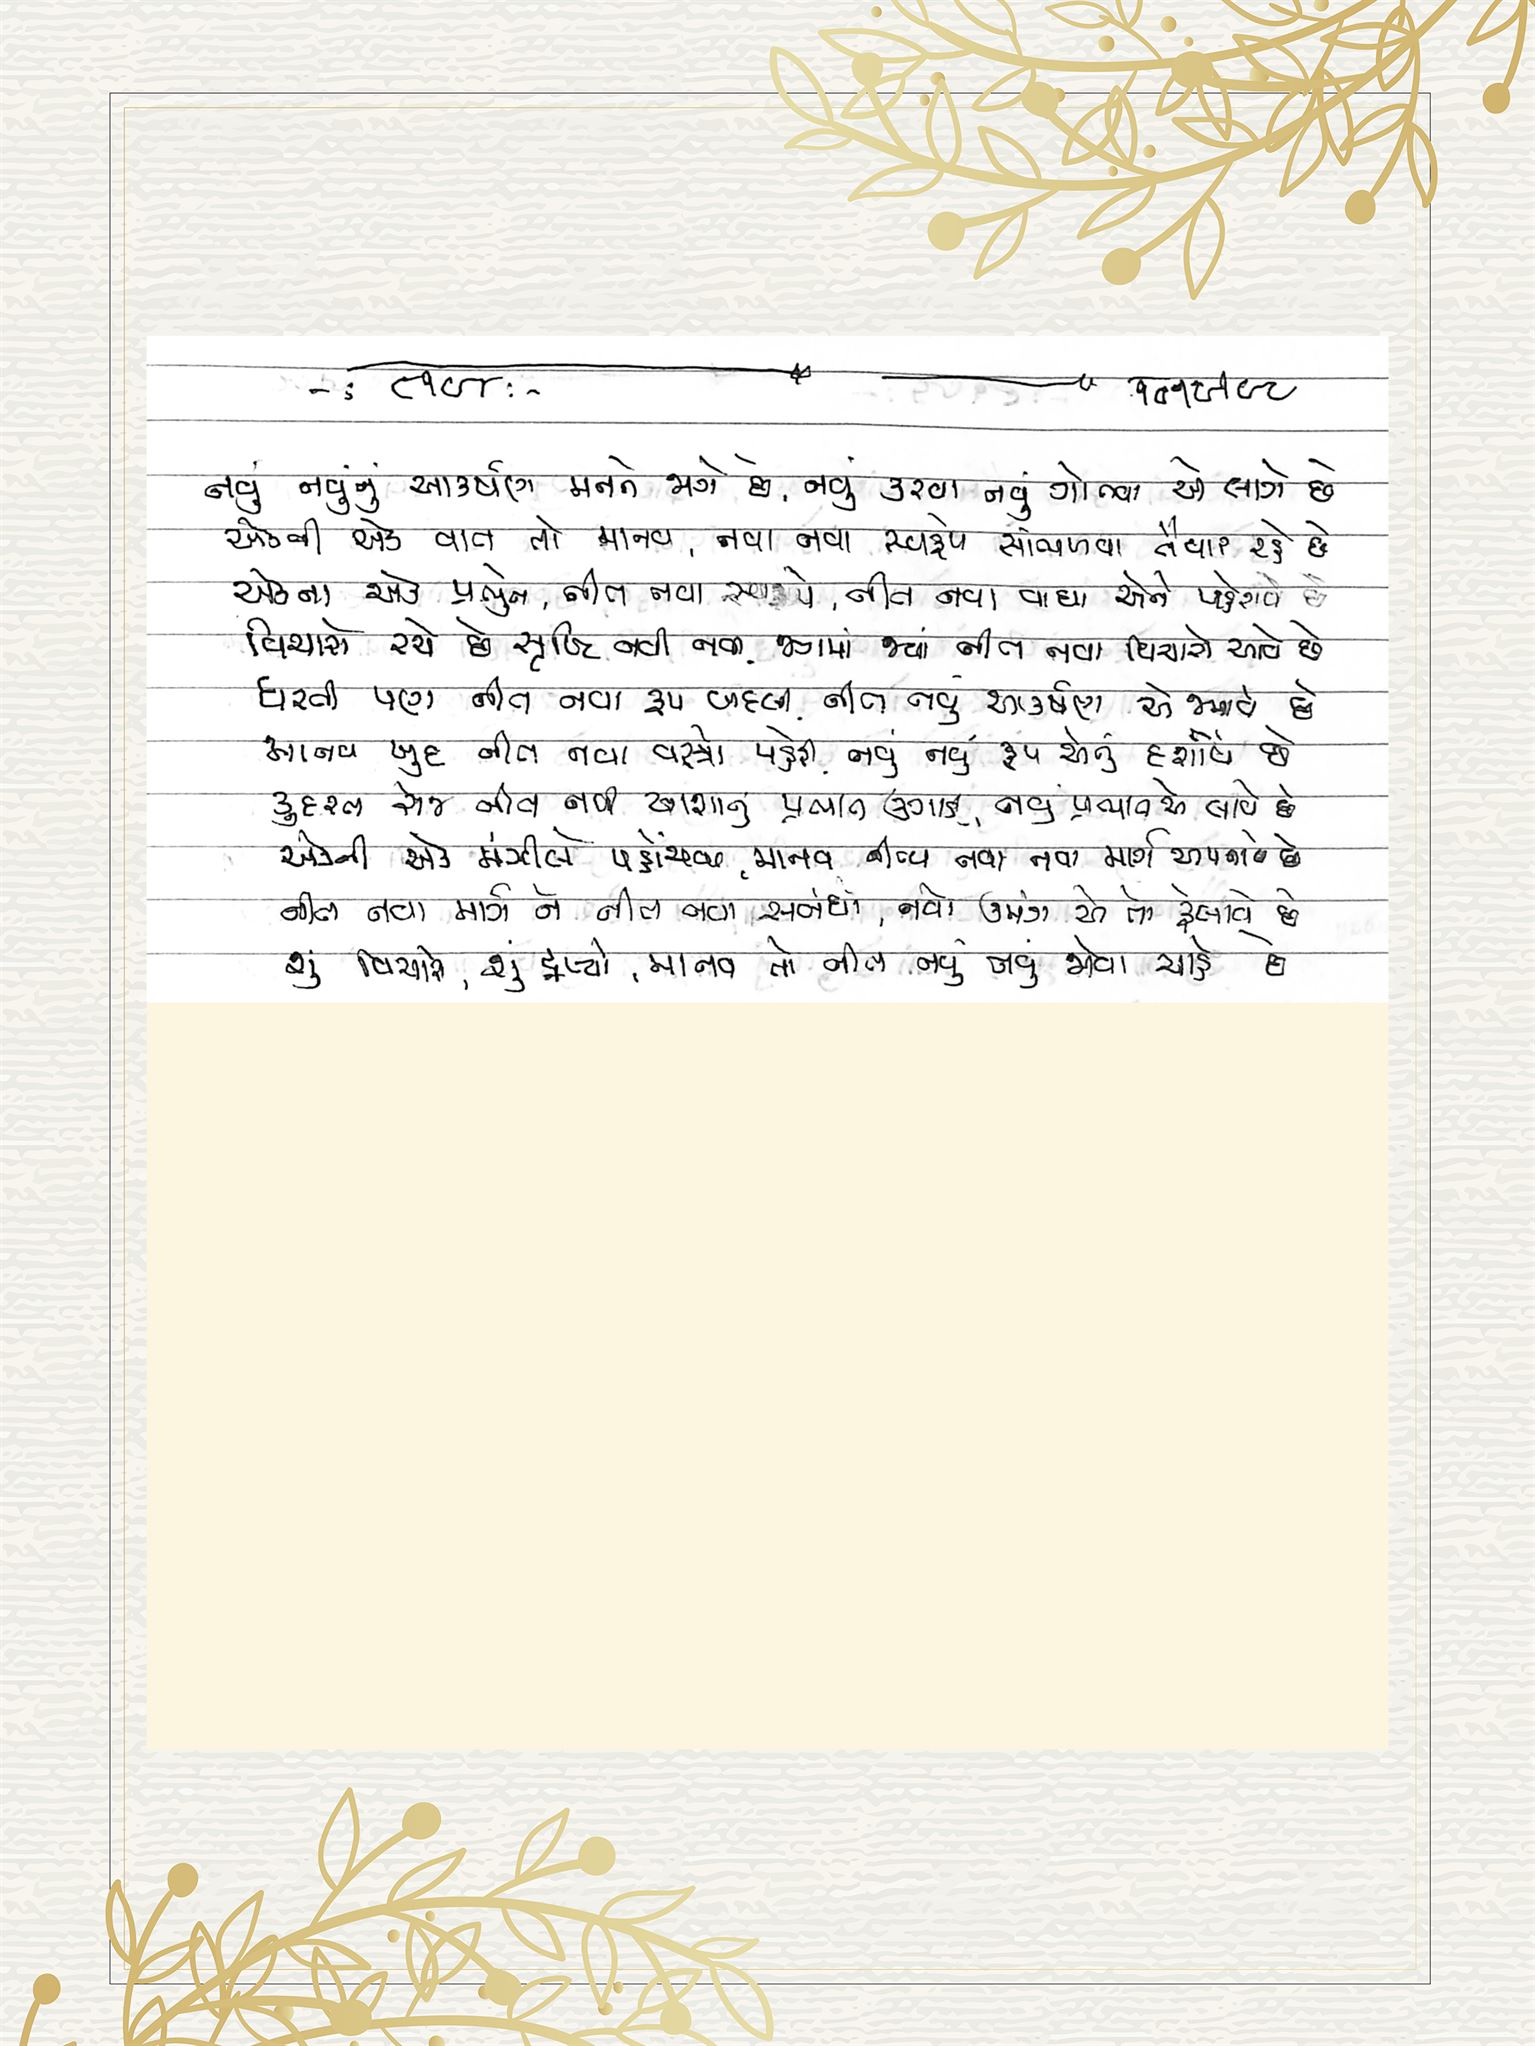 નવું નવુંનું આકર્ષણ મનને જાગે છે, નવું કરવા નવું ગોત્વા એ લાગે છે
એકની એક વાત તો માનવ, નવા નવા સ્વરૂપે સાંભળવા તૈયાર રહે છે
એકના એક પ્રભુને, નીત નવા, નીત નવા વાઘા એને પહેરાવે છે
વિચારો રચે છે સૃષ્ટિ નવી નવી, જગમાં જ્યાં નીત નવા વિચારો આવે છે
ધરતી પણ નીત નવા રૂપ બદલી, નીત નવું આકર્ષણ એ જમાવે છે
માનવ ખુદ નીત નવા વસ્ત્રો પહેરી, નવું નવું રૂપ એનું દર્શાવે છે
કુદરત રોજ નીત નવી આશાનું પ્રભાત ઉગાડી, નવું પ્રભાત એ લાવે છે
એકની એક મંઝીલે પહોંચવા, માનવ નીત્ય નવા નવા માર્ગ અપનાવે છે
નીત નવા માર્ગ ને નીત નવા સબંધો, નવો ઉમંગ એ તો ફેલાવે છે
શું વિચારો, શું દૃશ્યો, માનવ તો નીત નવું નવું જોવા ચાહે છે